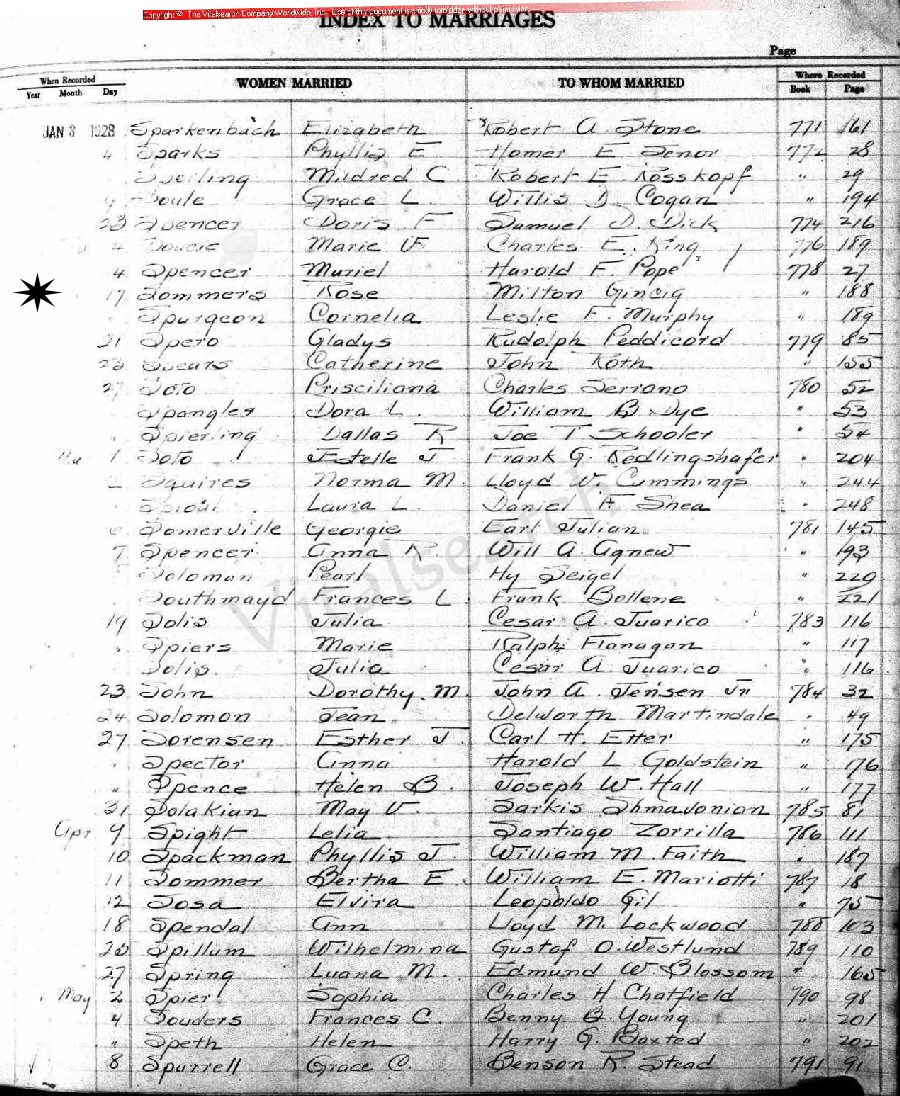 Copyright © The Vitalsearch Company Worldwide, Inc. Use of this document is strictly forbidden without permission
INDEX TO MARRIAGES
Page
When Recorded WOMEN MARRIED TO WHOM MARRIED Where Recorded
Year Month Day Book Page
JAN 3 1928 Sparkenbach Elizabeth Robert A. Stone 771 161
4 Sparks Phyllis E Homer E Senor 772 28
Mildred C Robert E Rosskopf " 29
Soule Grace L. Willis D. Cogan " 194
23 Spencer Doris F Samuel D. Dick 774 216
4 Marie V. Charles E. King 776 189
4 Spencer Muriel Harold F. Pope 778 27
17 Sommers Rose Milton Gincig " 188
" Spurgeon Cornelia Leslie F. Murphy " 189
21 Spero Gladys Rudolph Peddicord 779 85
23 Spears Catherine John Roth " 155
27 Soto Prisciliana Charles Serrano 780 52
Spangler Dora L. William B. Dye " 53
" Spierling Dallas R Joe T Schooler " 54
Ma 1 Soto Estelle J Frank G. Redlingshafer " 204
2 Squires Norma M. Lloyd W. Cummings " 244
Laura L. Daniel F. Shea " 248
6 Somerville Georgie Earl Julian 781 145
7 Spencer Anna R. Will A. Agnew " 193
Solomon Pearl Hy Seigel " 220
Southmayd Frances L. Frank Bollene " 221
19 Solis Julia Cesar A. Juarico 783 116
" Spiers Marie Ralph Flanagan " 117
Solis Julia Cesar A Juarico " 116
23 Sohn Dorothy M. John A. Jensen Jr 784 32
24 Solomon Jean Delworth Martindale " 49
27 Sorensen Esther J. Carl H. Etter " 175
" Spector Anna Harold L Goldstein " 176
" Spence Helen B. Joseph W. Hall " 177
31 Solakian May V. Sarkis Shmavonian 785 81
Apr 9 Spight Lelia Santiago Zorrilla 786 111
10 Spackman Phyllis J. William M. Faith " 187
11 Sommer Bertha E. William E. Mariotti 787 18
12 Sosa Elvira Leopoldo Gil " 75
18 Spendal Ann Lloyd M. Lockwood 788 103
20 Spillum Wilhelmina Gustaf O. Westlund 789 110
27 Spring Luana M. Edmund W. Blossom " 165
May 2 Spier Sophia Charles H Chatfield 790 98
4 Souders Frances C. Benny B. Young " 201
" Speth Helen Harry G. Baxted " 202
8 Spurrell Grace C. Benson R. Stead 791 91
Vitalsearch